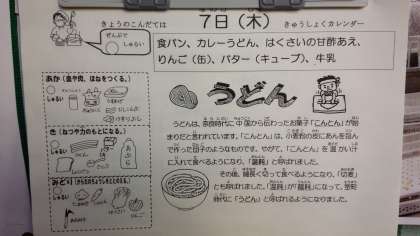 きょうのこんだては
7日(木)
きゅうしょくカレンダー
ぜんぶで
しゅるい
食パン、カレーうどん、はくさいの甘酢あえ、
りんご(缶)、バター(キューブ)、牛乳
あか(血や肉、ほねをつくる。)
しゅるい
き(ねつや力のもとになる。)
しゅるい
みどり(からだのちょうしをととのえる。)
しゅるい
うどん
うどんは、奈良時代に中国から伝わったお菓子「こんとん」が始
まりだと思われています。「こんとん」は、小麦粉の皮にあんを包ん
で作った団子のようなものです。やがて、「こんとん」を温かい汁
に入れて食べるようになり、「温飩」と呼ばれました。
その後、細長く切って食べるようになり、「切麦」
とも呼ばれました。「温飩」が「饂飩」になって、室町
時代に「うどん」と呼ばれるようになりました。